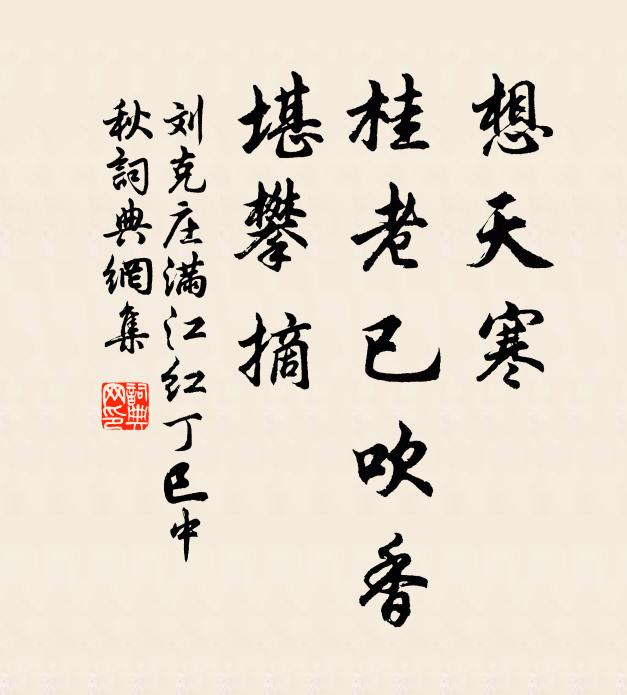 想天寒
桂老已吹香
堪攀摘
刘克庄满江红丁巳中
秋詞典網集
詞典
网印